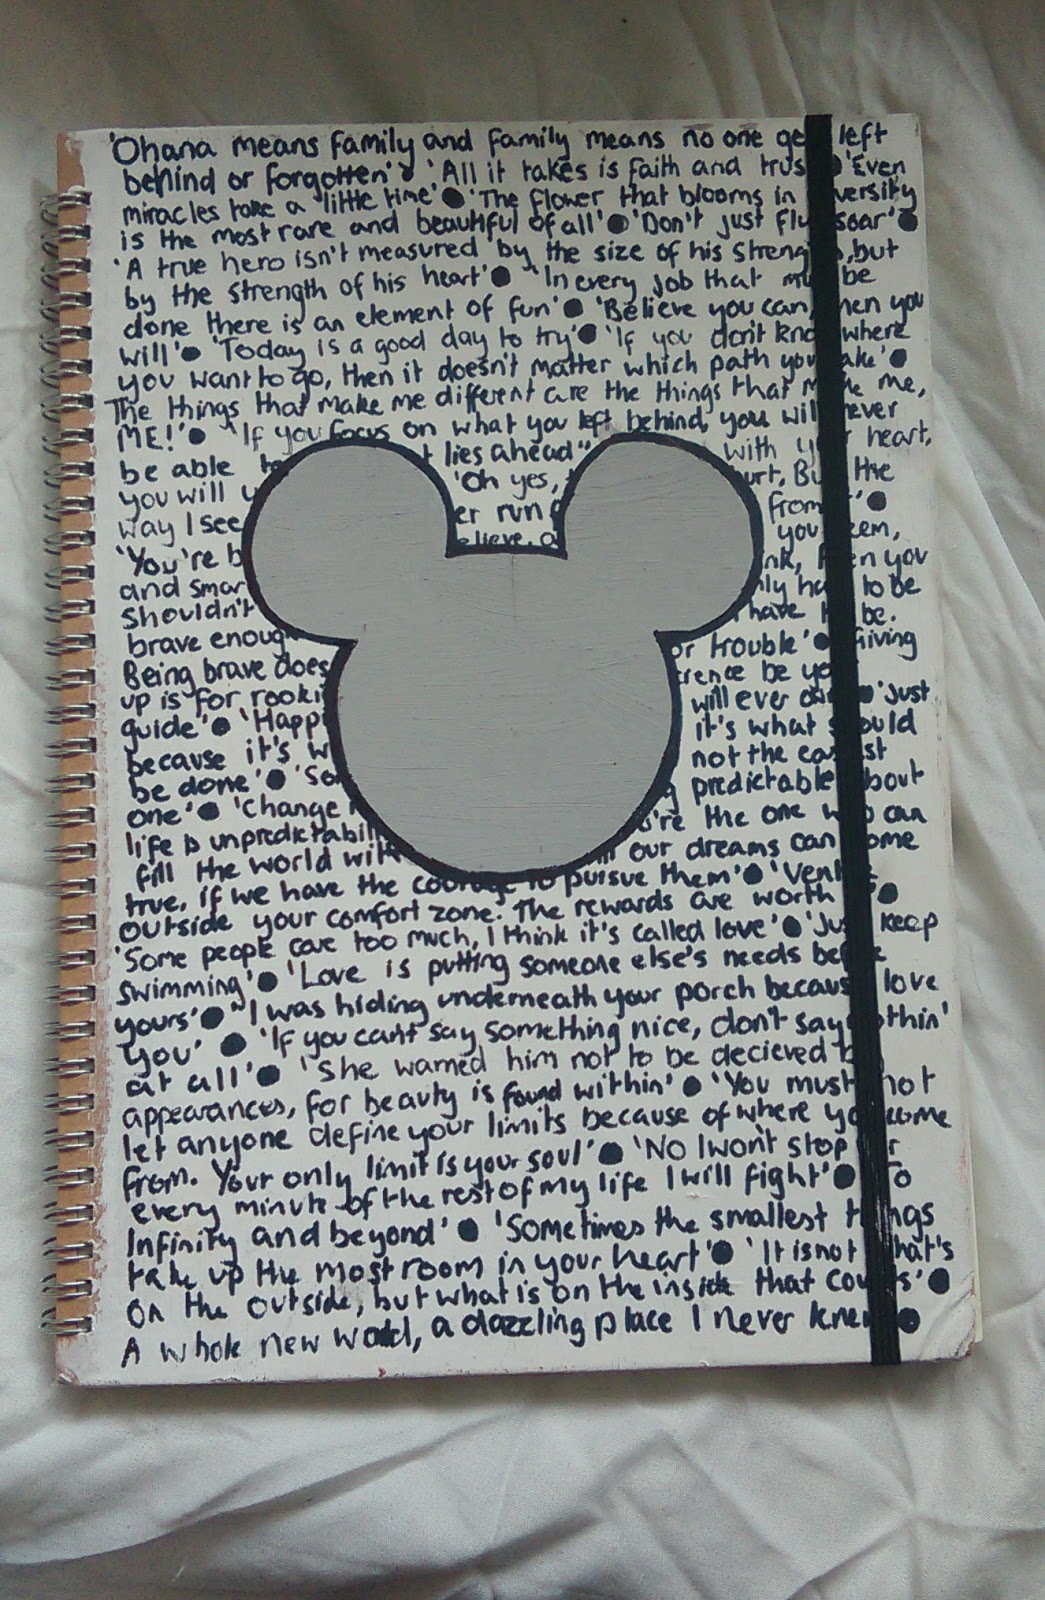 'Ohana means family and family means no one ge left
behind or forgotten' 'All it takes is faith and trus 'Even
miracles take a little time' 'The flower that blooms in versity
is the most rare and beautiful of all' 'Don't just fly soar'
'A true hero isn't measured by the size of his streng ,but
by the strength of his heart' 'In every job that mu be
done there is an element of fun' 'Believe you can, hen you
will' 'Today is a good day to try' 'If you don't kno where
you want to go, then it doesn't matter which path you ake'
The things that make me different are the things that m ke me,
ME!' 'If you focus on what you left behind, you will never
be able t lies ahead" with y r heart,
you will 'Oh yes, urt, Bu the
way I see er run from t'
'You're b elieve, you eem,
and smar nk, en you
shouldn't nly ha to be
brave enoug have be.
Being brave does or trouble' Giving
up is for rooki rence be yo
guide' 'Happi will ever 'Just
because it's w it's what s ould
be done' 'So not the ea st
one' 'Change predictable bout
life is unpredictabili u're the one w o can
fill the world wit our dreams can ome
true, if we have the courage to pursue them' 'Vent
outside your comfort zone. The rewards are worth
'Some people care too much, I think it's called love' 'Ju keep
swimming' 'Love is putting someone else's needs be e
yours' "I was hiding underneath your porch becaus love
you' 'If you can't say something nice, don't say othin'
at all' 'She warned him not to be decieved b
appearances, for beauty is found within' 'You must not
let anyone define your limits because of where yo come
from. Your only limit is your soul' 'No I won't stop r
every minute of the rest of my life I will fight' To
Infinity and beyond' 'Sometimes the smallest t ngs
take up the most room in your heart' 'It is not hat's
on the outside, but what is on the inside that cou ts'
A whole new world, a dazzling place I never kne